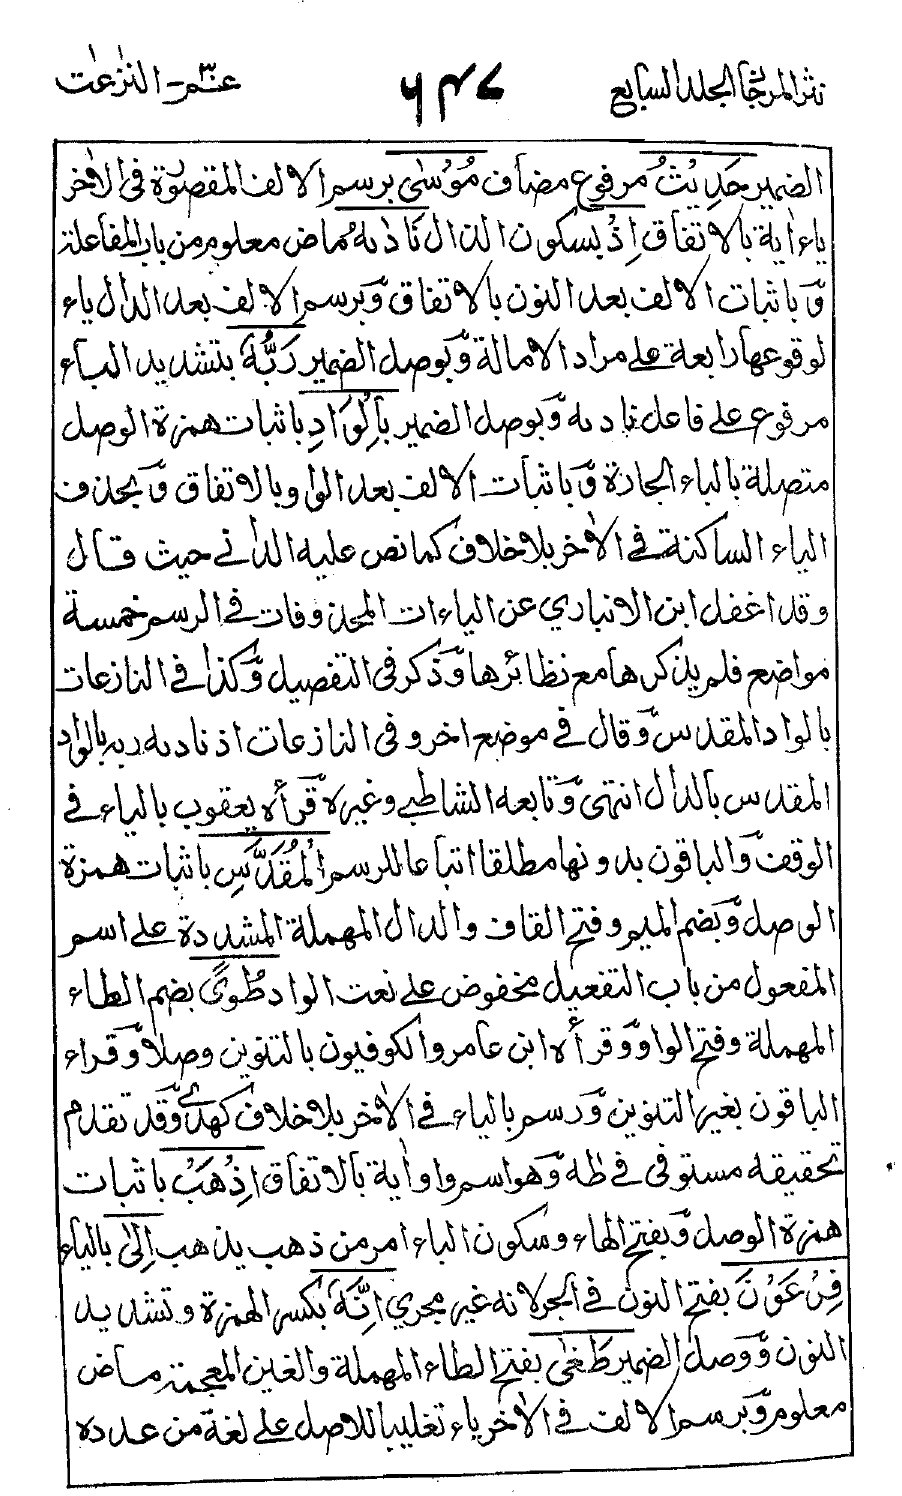 نثر المرجان الجلد السابع ٦٤٧ عـم - النزعت
الضمير حَدِيْثُ مرفوع مضاف مُوْسٰى برسم الالف المقصورة في الاٰخر
ياء اٰية بالاتفاق اِذْ بسكون الذال نَادٰىهُ ماض معلوم من باب المفاعلة
وَّباثبات الالف بعد النون بالاتفاق وَّبرسم الالف بعد الدال ياء
لوقوعها رابعة على مراد الامالة وَّبوصل الضمير رَبُّهٗ بتشديد الباء
مرفوع على فاعل نادىه وَّبوصل الضمير بِالْوَادِ باثبات همزة الوصل
متصلة بالباء الجارة وَّباثبات الالف بعد الواو بالاتفاق وَّبحذف
الياء الساكنة في الاٰخر بلاخلاف كما نص عليه الدانى حيث قال
وقد اغفل ابن الانباري عن الياءات المحذوفات في الرسم خمسة
مواضع فلم يذكرها مع نظائرها وَّذكر فى التفصيل وَّكذا في النازعات
بالواد المقدس وَّقال في موضع اخر وفى النازعات اذ نادىه ربه بالواد
المقدس بالدال انتهى وَّتابعه الشاطبي وغيره قرأه يعقوب بالياء في
الوقف وَّالباقون بدونها مطلقا اتباعا للرسم الْمُقَدَّسِ باثبات همزة
الوصل وَّبضم الميم وفتح القاف والدال المهملة المشددة على اسم
المفعول من باب التفعيل مخفوض على نعت الواد طُوًى بضم الطاء
المهملة وفتح الواو وَّقرأه ابن عامر والكوفيون بالتنوين وصلا وَّقراء
الباقون بغير التنوين وَّرسم بالياء في الاٰخر بلاخلاف كهدى وَّقد تقدم
تحقيقه مستوفى في طٰه وَّهو اسم واد اٰية بالاتفاق اِذْهَبْ باثبات
همزة الوصل وَّبفتح الهاء وسكون الباء امر من ذهب يذهب اِلٰى بالياء
فِرْعَوْنَ بفتح النون في الجر لانه غير مجري اِنَّهٗ بكسر الهمزة وتشديد
النون وَّوصل الضمير طَغٰى بفتح الطاء المهملة والغين المعجمة ماض
معلوم وَّبرسم الالف في الاٰخر ياء تغليبا للاصل على لغة من عدده